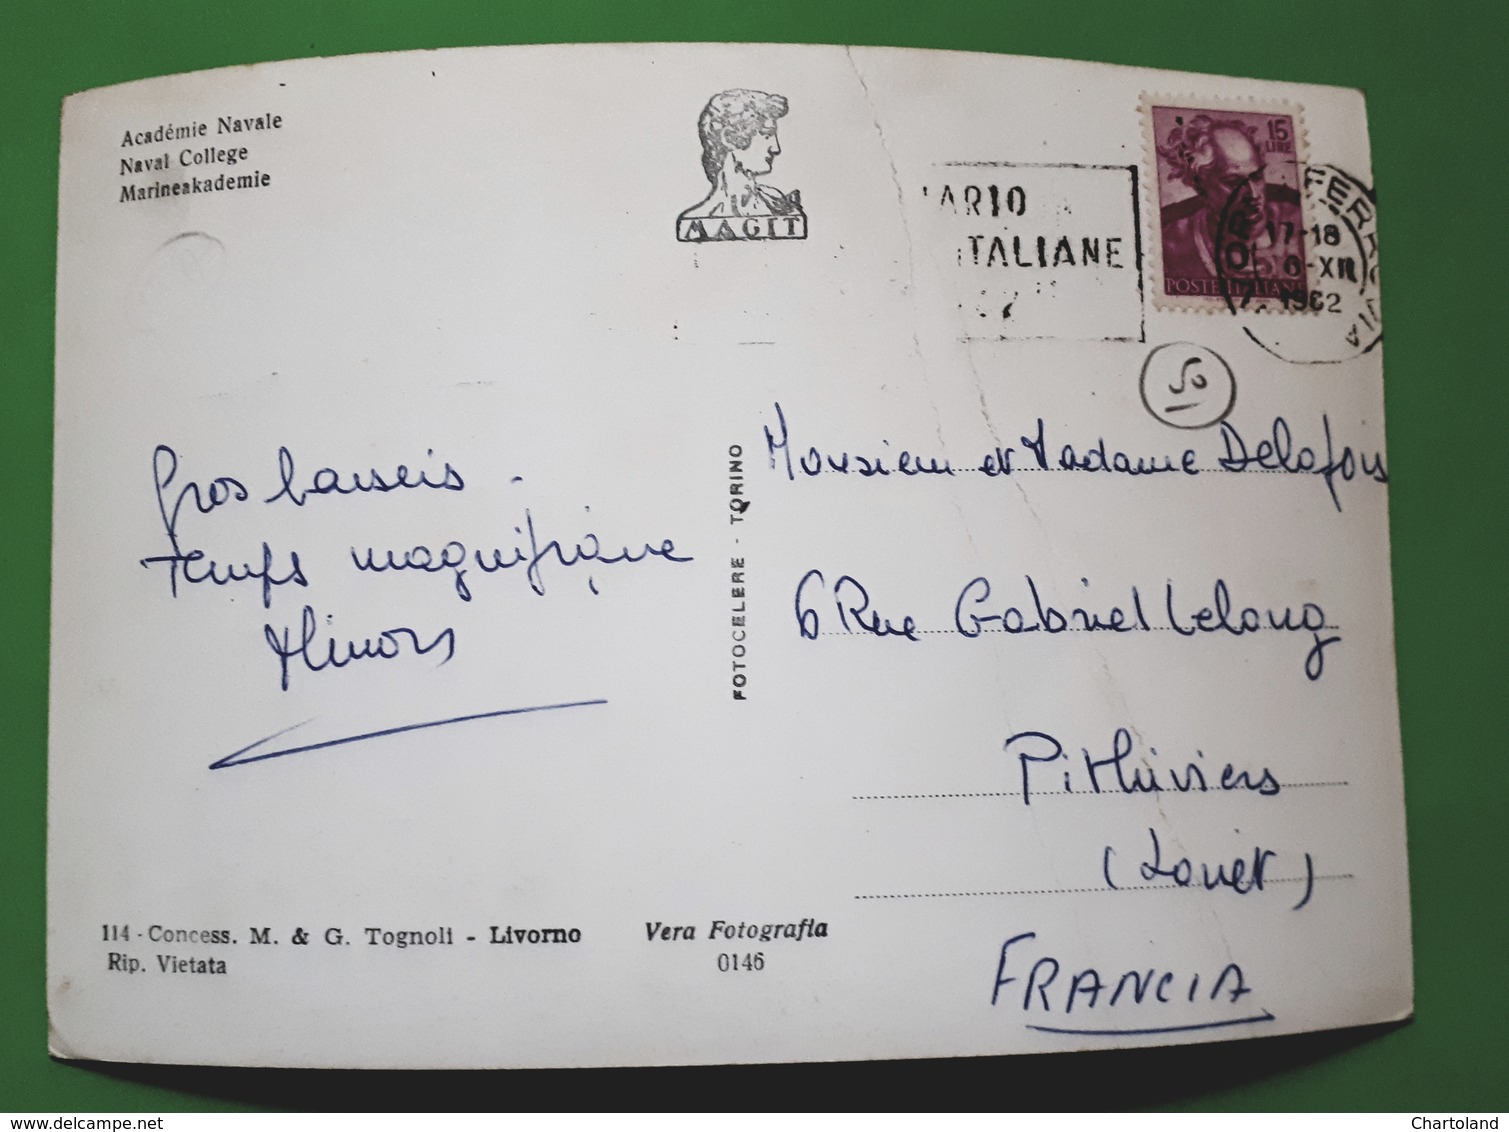 Académie Navale
Naval College
Marineakademie
MAGIT
ARIO
TALIANE
15
LIRE
POSTE ITALIANE
FERROVIA
17-18
6-XII
1962
50
Gros baisers -
temps magnifique
FOTOCELERE - TORINO
Monsieur et Madame Delafois
6 Rue Gabriel Lelong
Pithiviers
(Loiret)
FRANCIA
114 - Concess. M. & G. Tognoli - Livorno
Rip. Vietata
Vera Fotografia
0146
www.delcampe.net
Chartoland